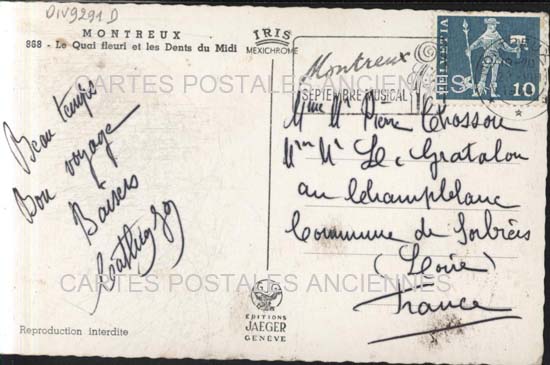 DIV9291 D
MONTREUX
868 - Le Quai fleuri et les Dents du Midi
IRIS
MEXICHROME
HELVETIA
10
Montreux
SEPTEMBRE MUSICAL
CARTES POSTALES ANCIENNES
Beau temps
Bon voyage
Baisers
Mme Mr Pierre Chossou
Mme Mr Le Gratalon
au Champblanc
Commune de Sorbiers
(Loire)
France
CARTES POSTALES ANCIENNES
EDITIONS
JAEGER
GENÈVE
Reproduction interdite